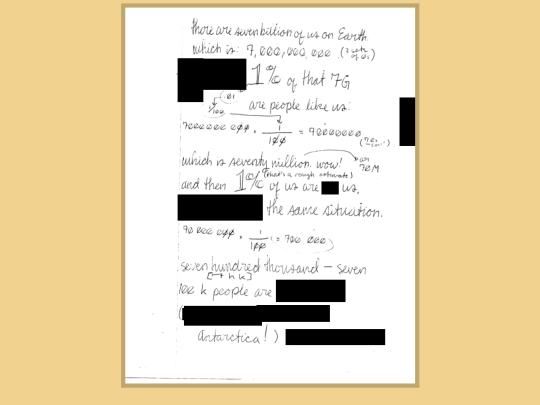 there are seven billion of us on Earth
which is: 7,000,000,000
1% of that 7G
.01
1/100
are people like us:
7000000 000 · 1/100 = 70000000
which is seventy million. wow! or 70M
(that's a rough estimate)
and then 1% of us are us,
the same situation.
70 000 000 · 1/100 = 700 000
seven hundred thousand – seven
100 k people are
(
Antarctica!)